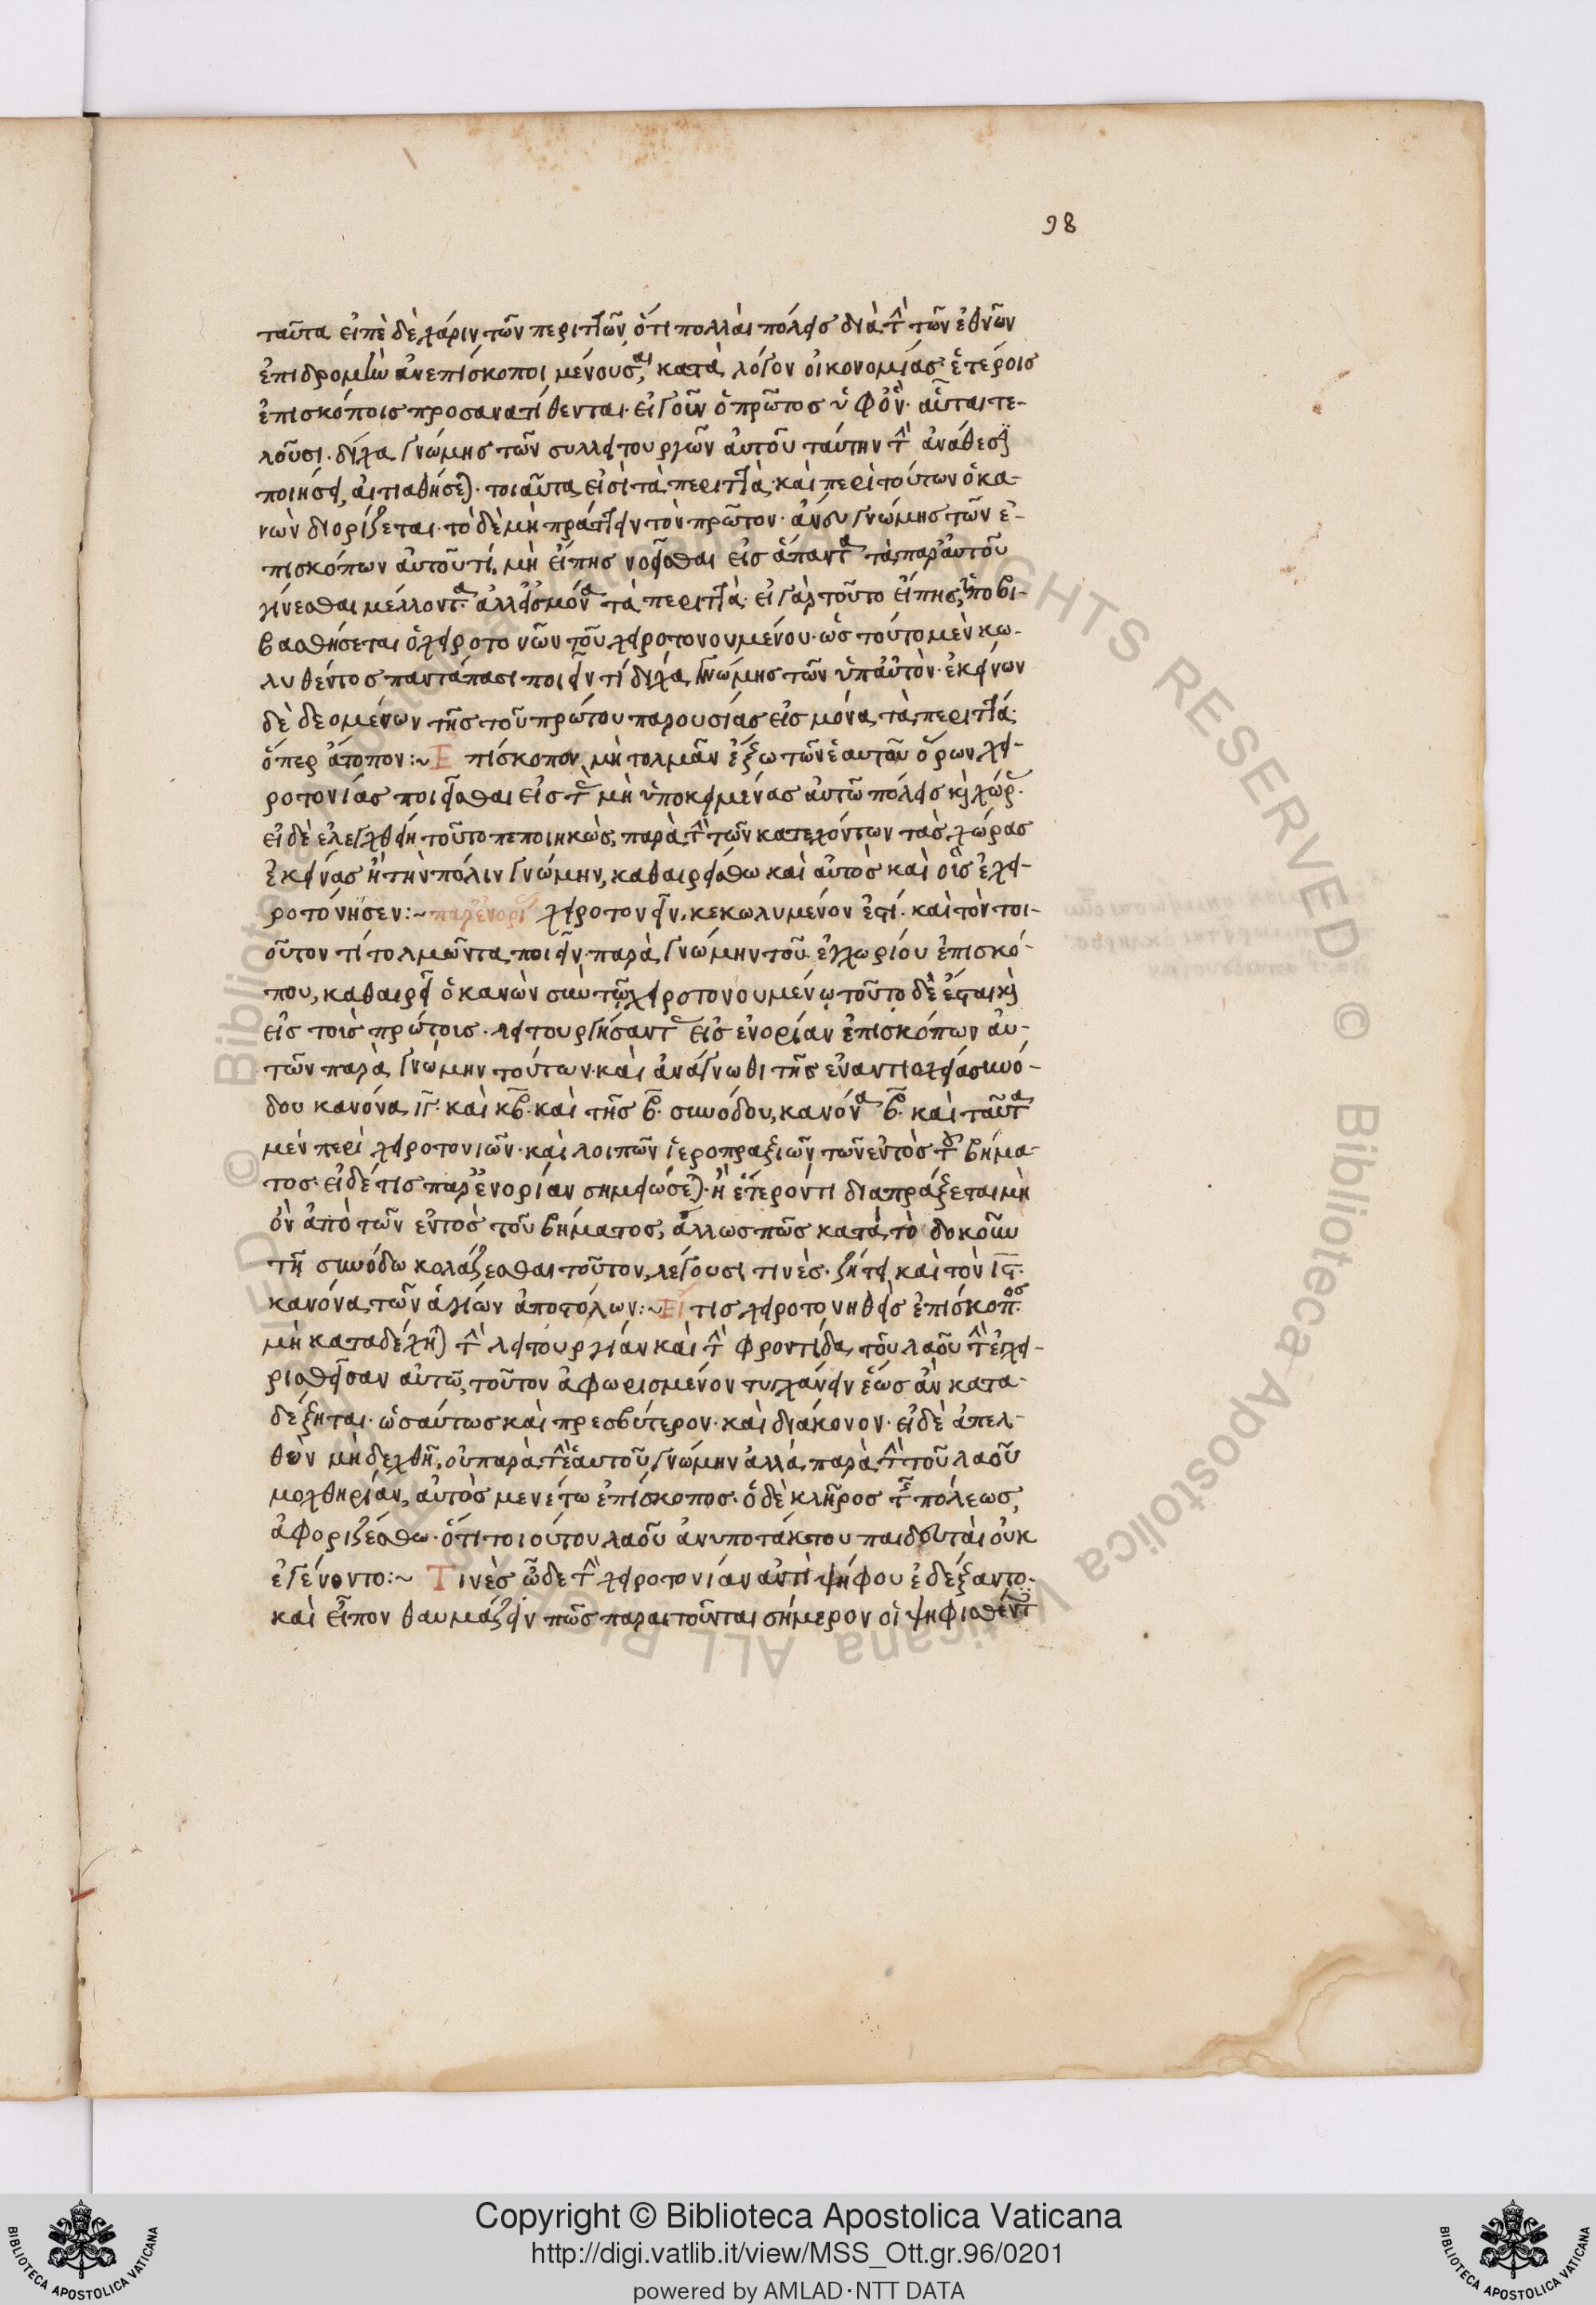 98
ταῦτα εἰπὲ δὲ χάριν τῶν περιττῶν, ὅτι πολλαὶ πόλεις διὰ τὴν τῶν ἐθνῶν
ἐπιδρομὴν ἀνεπίσκοποι μένουσαι, κατὰ λόγον οἰκονομίας ἑτέροις
ἐπισκόποις προσανατίθενται. εἰ γοῦν ὁ πρῶτος ὑφ' ὃν αὗται τε-
λοῦσι. δίχα γνώμης τῶν συλλειτουργῶν αὐτοῦ ταύτην τὴν ἀνάθεσιν
ποιήσει, αἰτιαθήσεται. τοιαῦτα εἰσὶ τὰ περιττὰ. καὶ περὶ τούτων ὁ κα-
νὼν διορίζεται. τὸ δὲ μὴ πράττειν τὸν πρῶτον. ἄνευ γνώμης τῶν ἐ-
πισκόπων αὐτοῦ τί, μὴ εἴπης νοεῖσθαι εἰς ἅπαντα τὰ παρ' αὐτοῦ
γίνεσθαι μέλλοντα. ἀλλ' εἰς μόνα τὰ περιττὰ. εἰ γὰρ τοῦτο εἴπης, ὑποβι-
βασθήσεται ὁ χειροτονῶν τοῦ χειροτονουμένου. ὡς τούτου μὲν κω-
λυθέντος παντάπασι ποιεῖν τί δίχα γνώμης τῶν ὑπ' αὐτὸν. ἐκείνων
δὲ δεομένων τῆς τοῦ πρώτου παρουσίας εἰς μόνα τὰ περιττά.
ὅπερ ἄτοπον:~ Ἐπίσκοπον μὴ τολμᾶν ἔξω τῶν ἑαυτοῦ ὅρων χει-
ροτονίας ποιεῖσθαι εἰς τὰς μὴ ὑποκειμένας αὐτῶ πόλεις καὶ χώρας.
εἰ δὲ ἐλεγχθείη τοῦτο πεποιηκὼς, παρὰ τὴν τῶν κατεχόντων τὰς χώρας
ἐκείνας ἢ τὴν πόλιν γνώμην, καθαιρείσθω καὶ αὐτὸς καὶ οὓς ἐχει-
ροτόνησεν:~ παρ' ἐνορίαν χειροτονεῖν, κεκωλυμένον ἐστί. καὶ τὸν τοι-
οῦτον τί τολμῶντα ποιεῖν παρὰ γνώμην τοῦ ἐγχωρίου ἐπισκό-
που, καθαιρεῖ ὁ κανὼν σὺν τῶ χειροτονουμένῳ τοῦτο δὲ ἔσται καὶ
εἰς τοὺς πρώτοις. λειτουργήσαντας εἰς ἐνορίαν ἐπισκόπων αὐ-
τῶν παρὰ γνώμην τούτων. καὶ ἀνάγνωθι τῆς ἐν ἀντιοχείᾳ συνό-
δου κανόνα ιγ. καὶ κβ. καὶ τῆς β. συνόδου, κανόνα β. καὶ ταῦτα
μὲν περὶ χειροτονιῶν. καὶ λοιπῶν ἱεροπραξιῶν τῶν ἐντὸς τοῦ βήμα-
τος. εἰ δέ τις παρ' ἐνορίαν σημειώσεται. ἢ ἕτερόν τι διαπράξεται μὴ
ὂν ἀπὸ τῶν ἐντὸς τοῦ βήματος, ἄλλως πῶς κατὰ τὸ δοκοῦν
τῆ συνόδω κολάζεσθαι τοῦτον, λέγουσι τινὲς. ζήτει καὶ τὸν ις.
κανόνα τῶν ἁγίων ἀποστόλων:~ Εἴ τις χειροτονηθεὶς ἐπίσκοπος.
μὴ καταδέχηται τὴν λειτουργίαν καὶ τὴν φροντίδα, τοῦ λαοῦ τὴν ἐγχει-
ρισθεῖσαν αὐτῶ, τοῦτον ἀφωρισμένον τυγχάνειν ἕως ἂν κατα-
δέξηται. ὡσαύτως καὶ πρεσβύτερον. καὶ διάκονον. εἰ δὲ ἀπελ-
θὼν μὴ δεχθῆ, οὐ παρὰ τὴν ἑαυτοῦ γνώμην ἀλλὰ παρὰ τὴν τοῦ λαοῦ
μοχθηρίαν, αὐτὸς μενέτω ἐπίσκοπος. ὁ δὲ κλῆρος τῆς πόλεως,
ἀφοριζέσθω. ὅτι τοιούτου λαοῦ ἀνυποτάκτου παιδευταὶ οὐκ
ἐγένοντο:~ Τινὲς ὧδε τὴν χειροτονίαν ἀντὶ ψήφου ἐδέξαντο.
καὶ εἶπον θαυμάζειν πῶς παραιτοῦνται σήμερον οἱ ψηφισθέντες
Copyright © Biblioteca Apostolica Vaticana
http://digi.vatlib.it/view/MSS_Ott.gr.96/0201
powered by AMLAD·NTT DATA